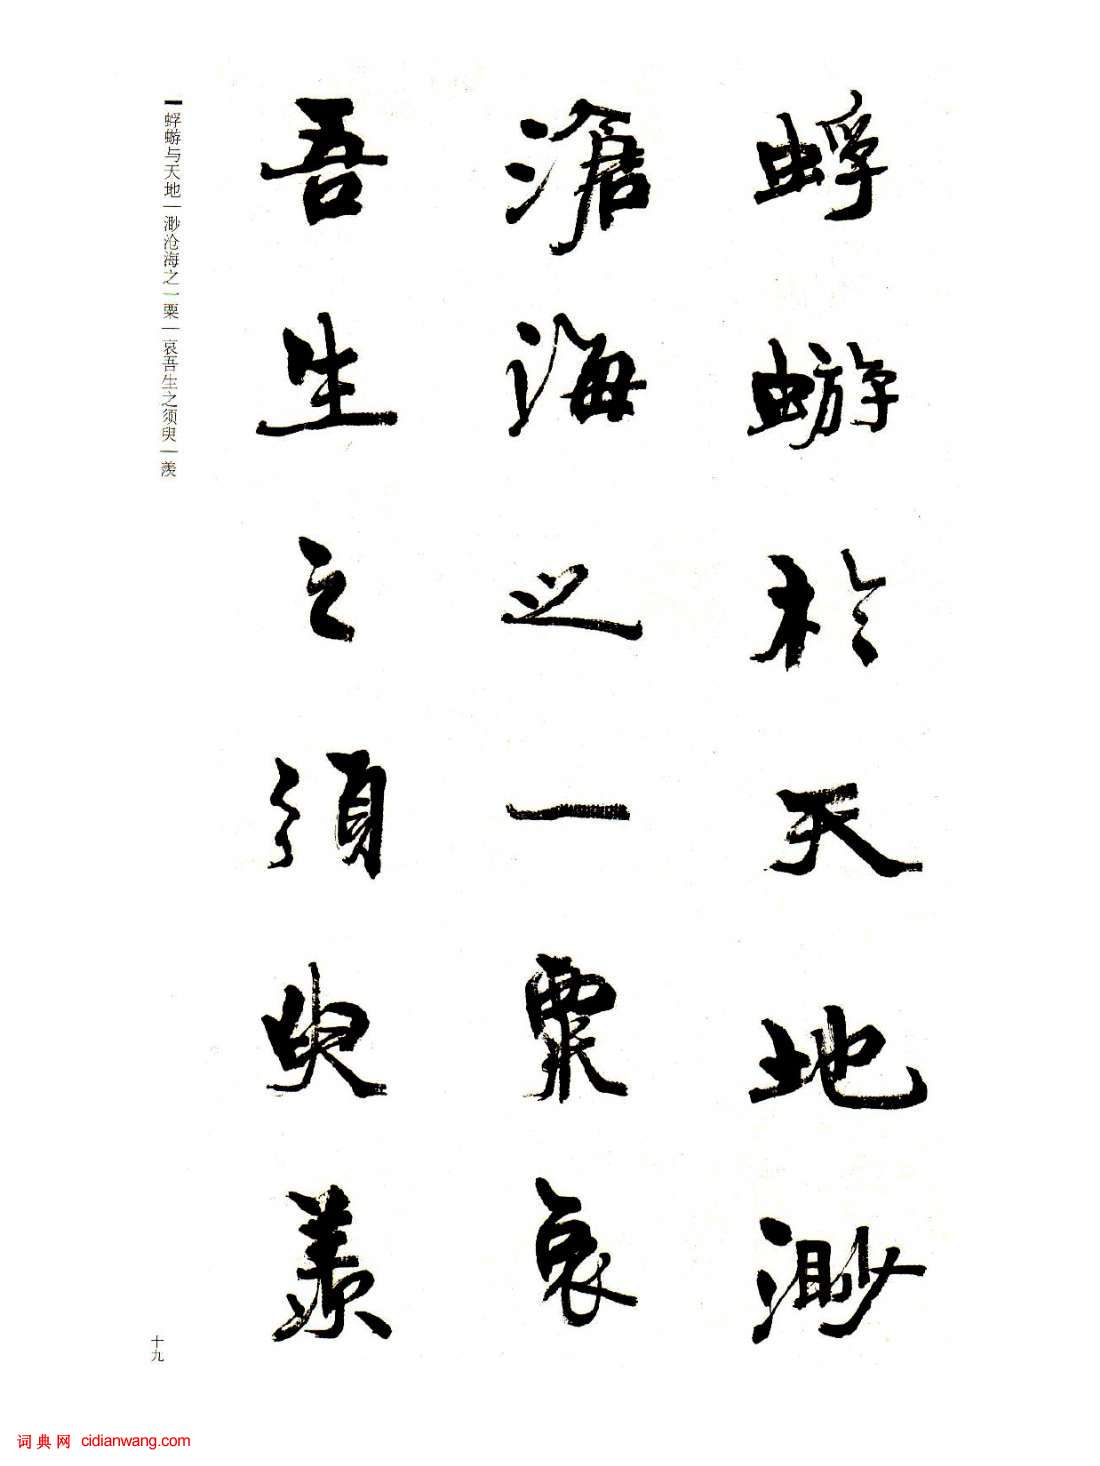 蜉蝣於天地渺
滄海之一粟哀
吾生之須臾羨
蜉蝣与天地|渺沧海之一粟|哀吾生之须臾|羡
十九
词典网 cidianwang.com